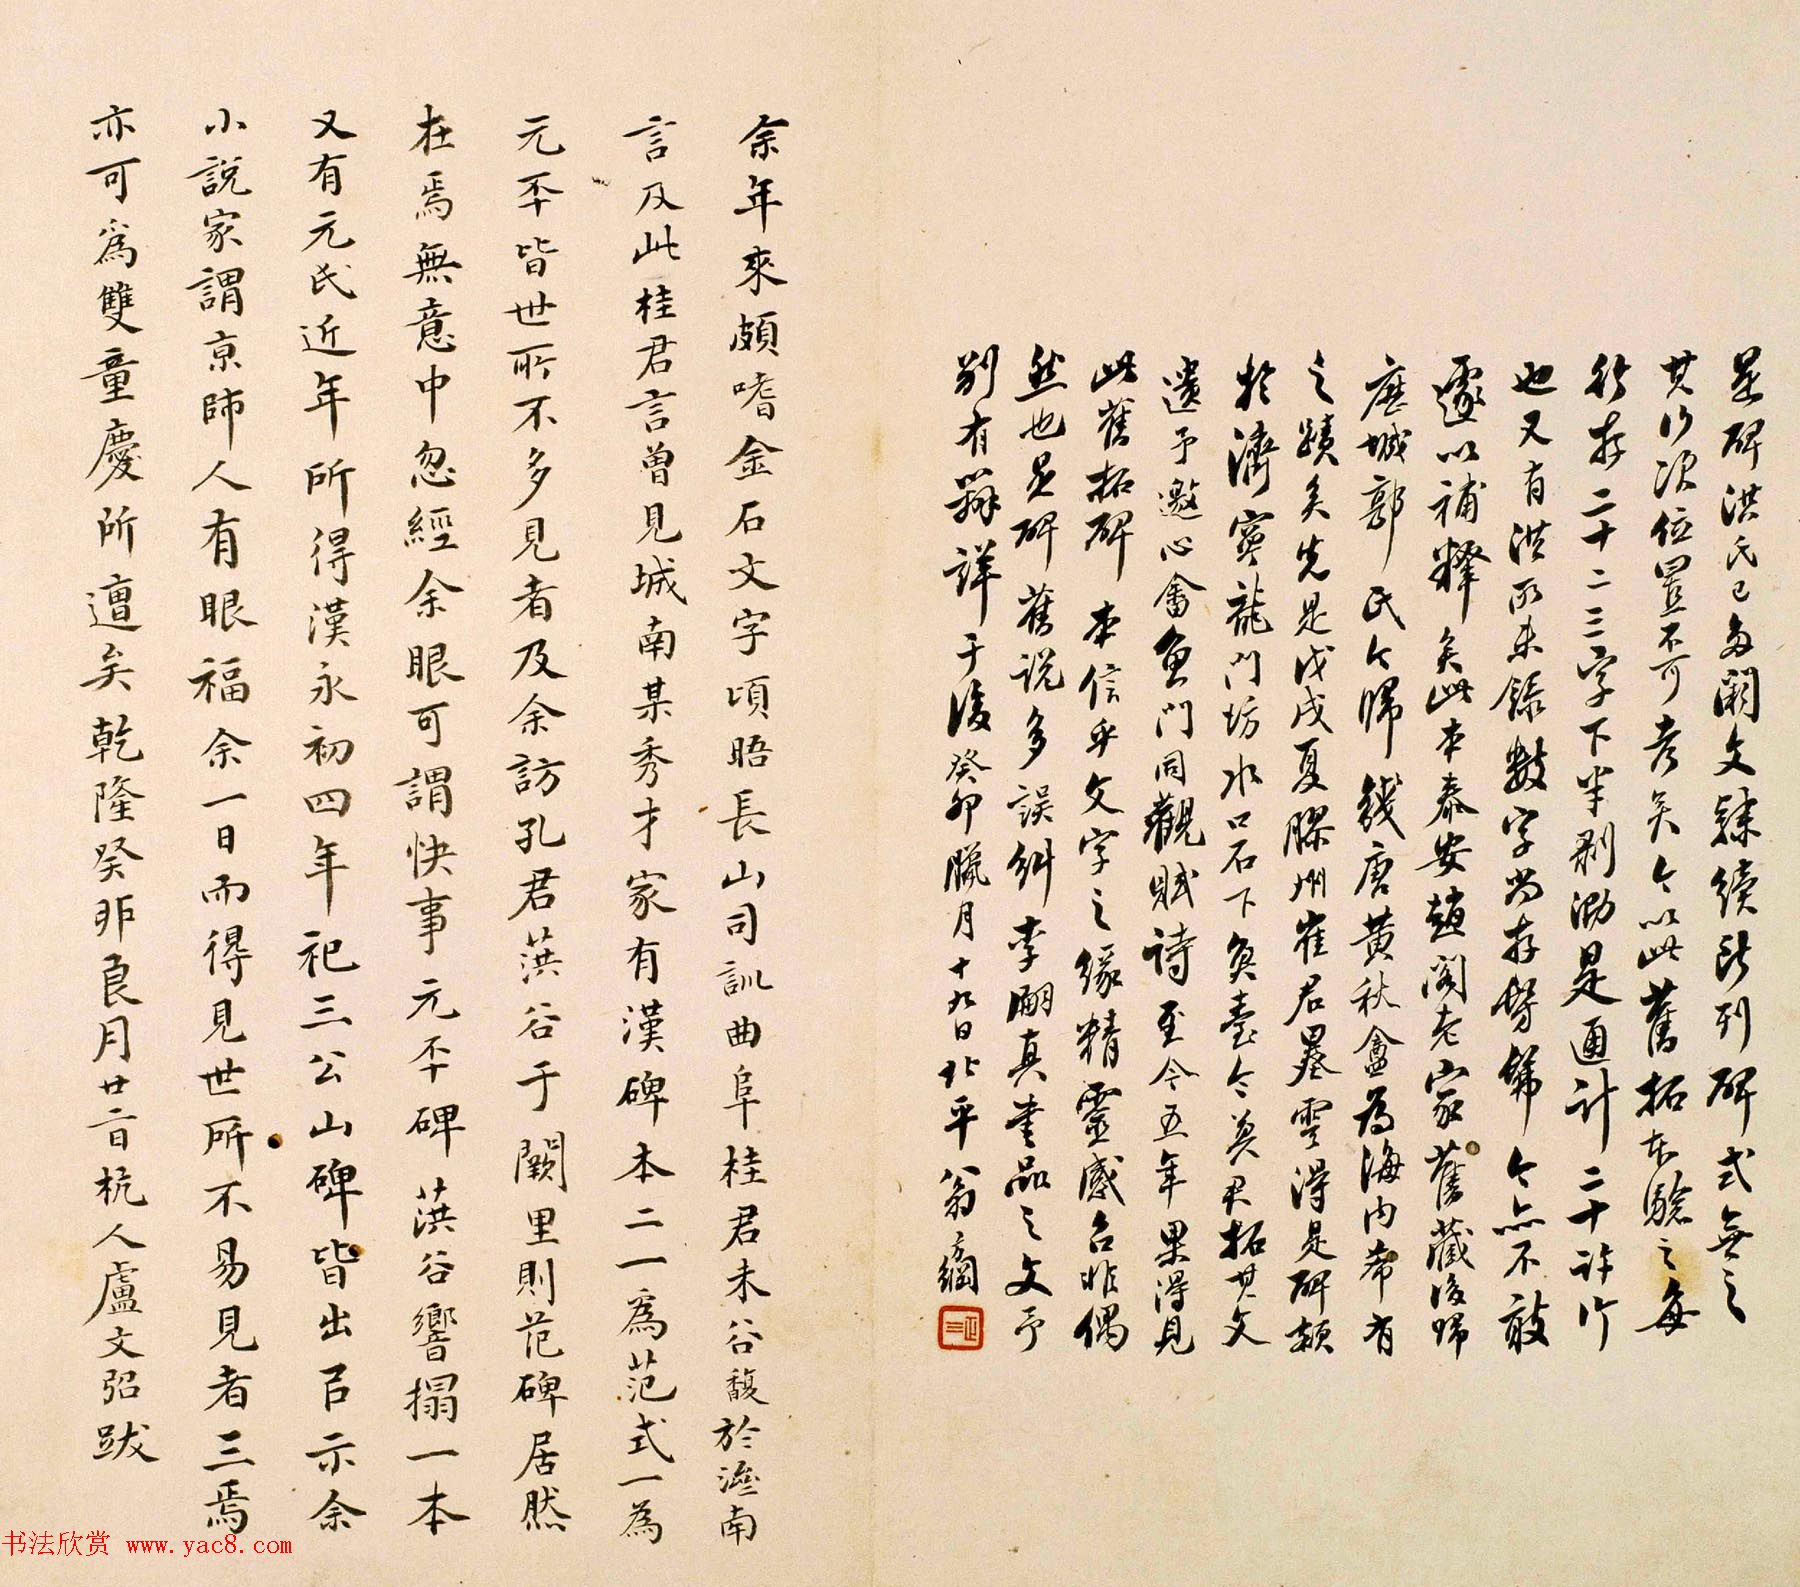 是碑洪氏已多闕文隸續所列碑式無之
其行次位置不可考矣今以此舊拓本驗之每
行存二十二三字下半剥泐是通計二十許行
也又有洪所未錄數字尚存髣髴今亦不敢
遽以補釋矣此本泰安趙閣老家舊藏後歸
歷城郭氏今歸錢唐黃秋盦為海内希有
之蹟矣先是戊戌夏膠州崔君墨雲得是碑額
於濟寧龍門坊水口石下矣 今 拓其文
遺予邀心畬魚門同觀賦詩至今五年果得見
此舊拓碑本信乎文字之緣精靈感召非偶
然也是碑舊説多誤糾李嗣真書品之文予
别有辨詳于後癸卯臘月十九日北平翁方綱
余年來頗嗜金石文字頃晤長山司訓曲阜桂君未谷馥於濼南
言及此桂君言曾見城南某秀才家有漢碑本二一為范式一為
元丕皆世所不多見者及余訪孔君葓谷于闕里則范碑居然
在焉無意中忽經余眼可謂快事元丕碑葓谷響搨一本
又有元氏近年所得漢永初四年祀三公山碑皆出㠯示余
小說家謂京師人有眼福余一日而得見世所不易見者三焉
亦可為雙童慶所遭矣乾隆癸卯良月廿二日杭人盧文弨跋
书法欣赏 www.yac8.com